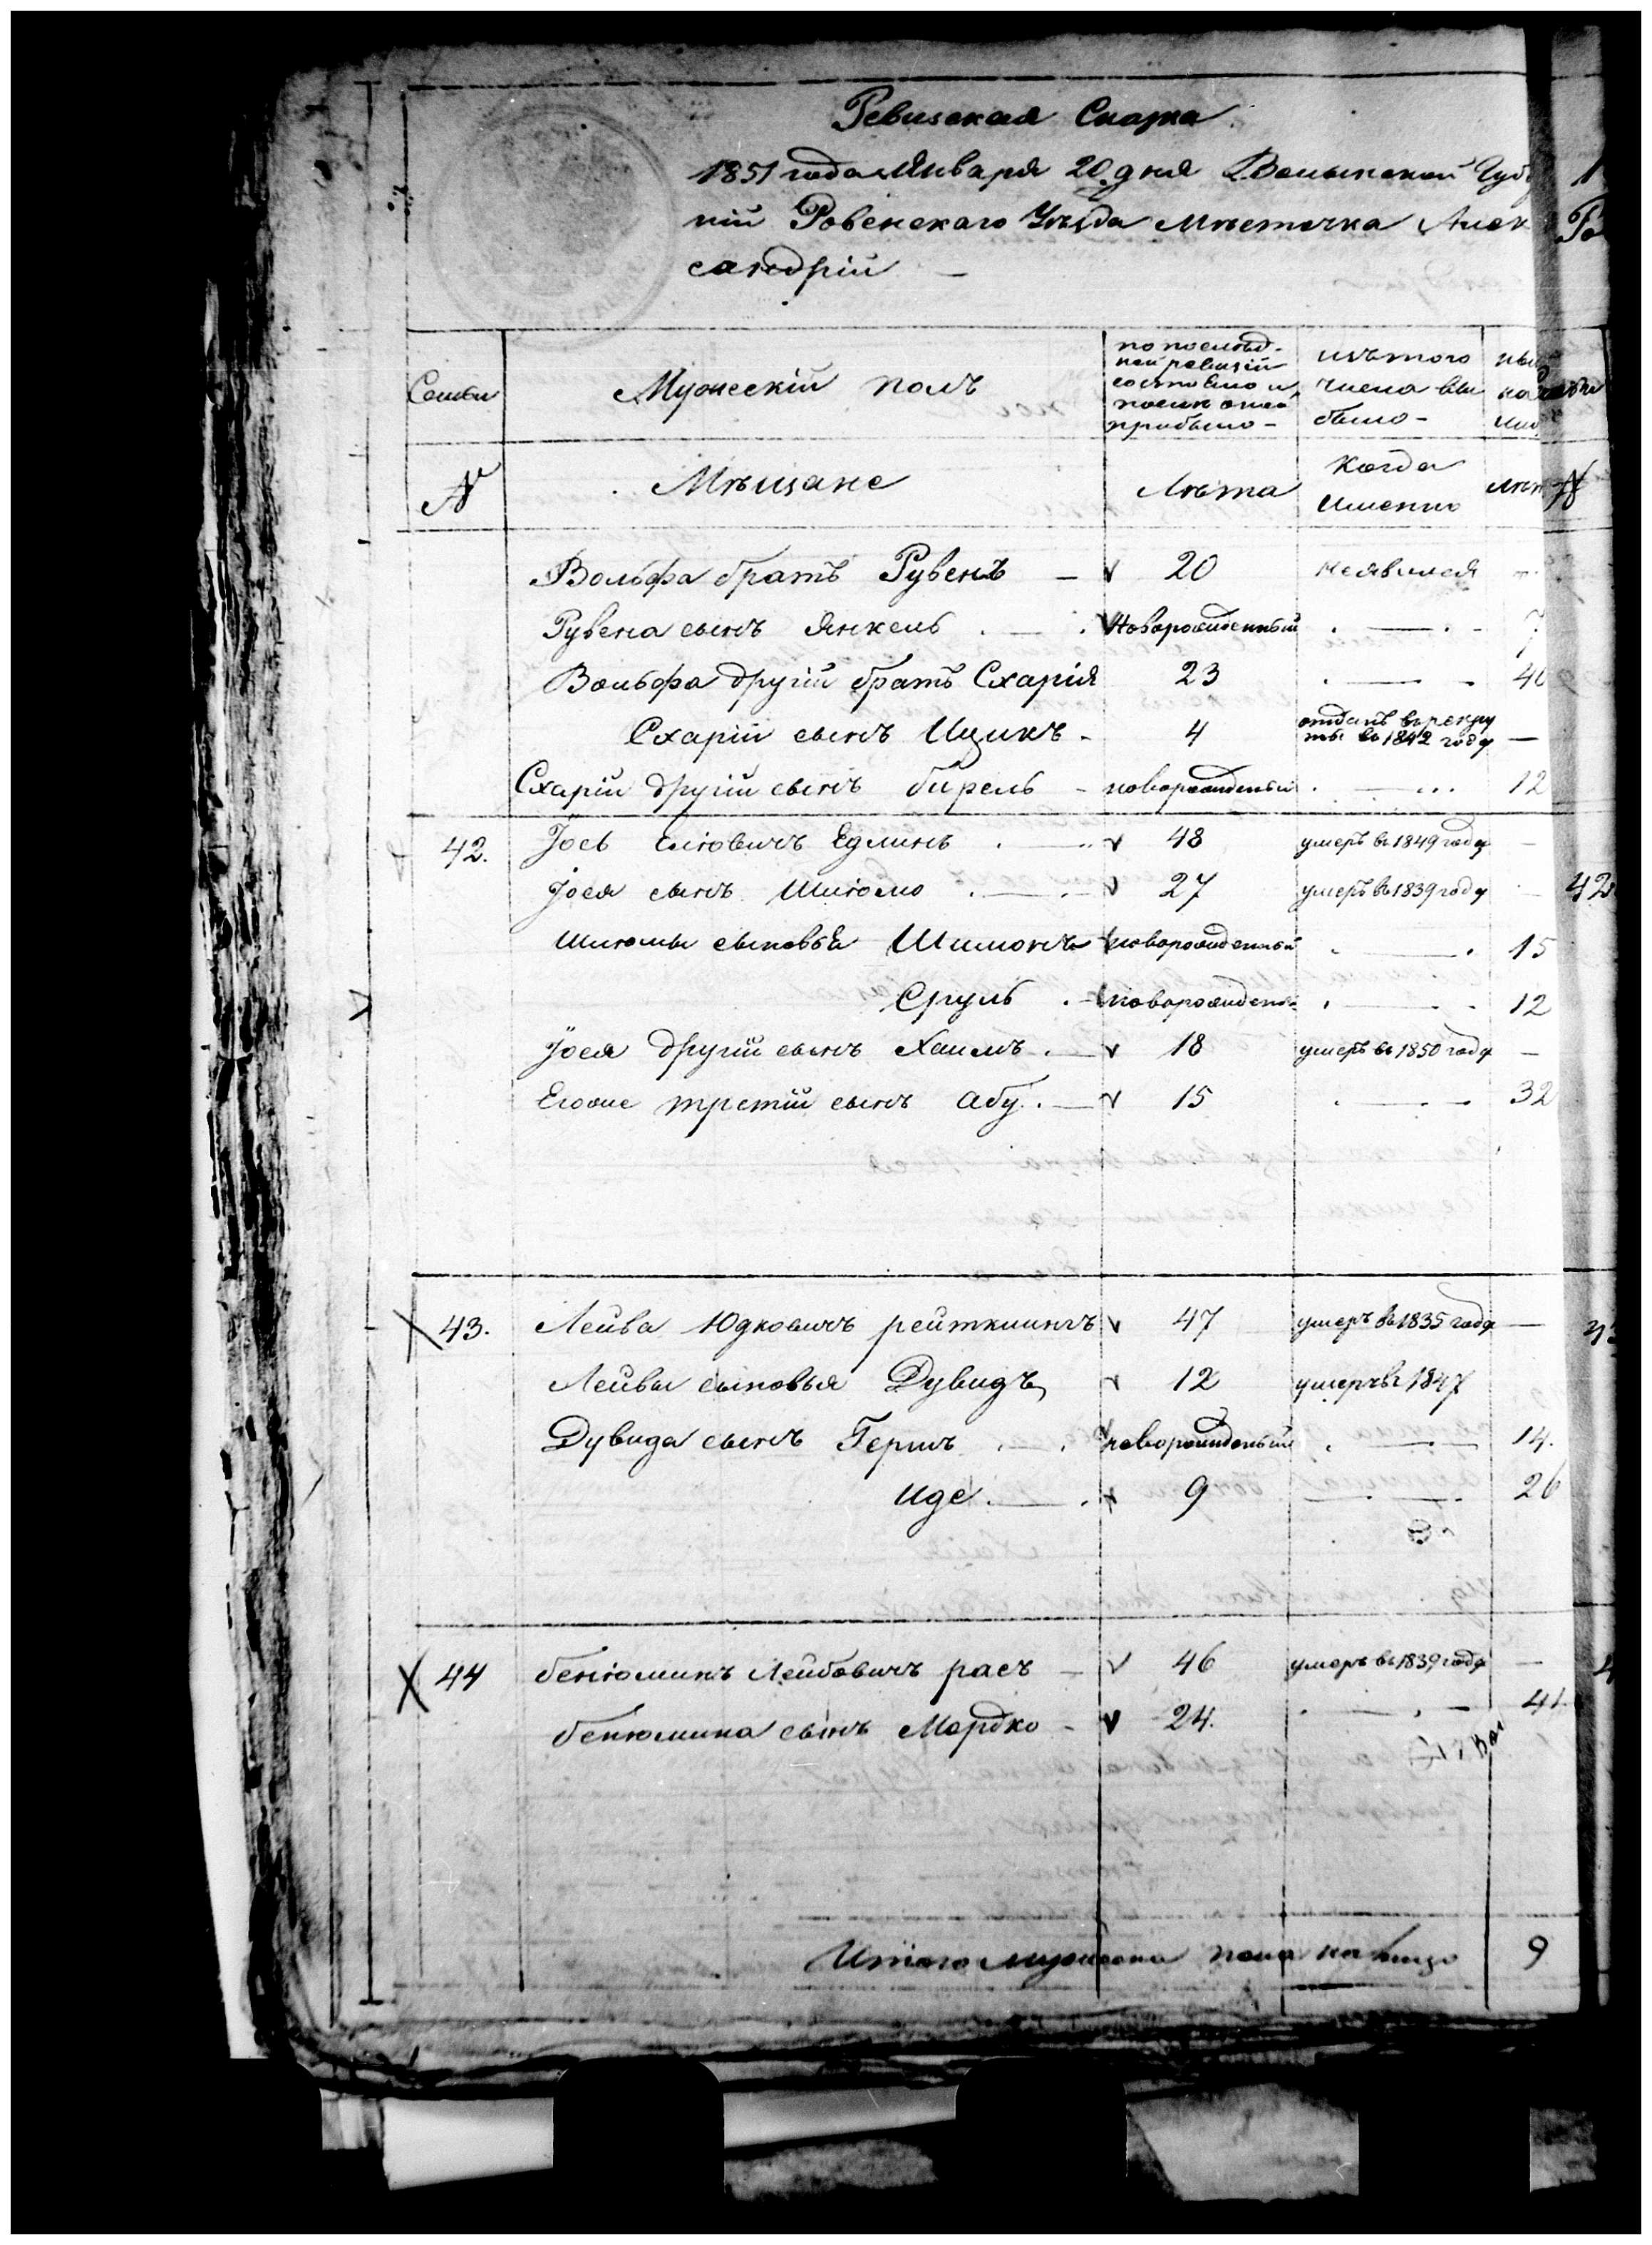 Ревизская Сказка
1851 года Января 20 дня Волынской Губ
ній Ровенскаго Уѣзда Мѣстечка Алек
сандрій —
Семьи Мужескій полъ
по послѣд-
ней ревизій
состояло и
послѣ оной
прибыло -
изъ того
числа вы
было -
№ Мѣщане Лѣта Когда
Именно
Вольфа братъ Рувенъ — 20 неявился
Рувена сынъ Янкель . — . Новорожденный . — . 7
Вольфа другій братъ Схарія 23 . — . 40
Схарій сынъ Ицикъ - 4 отданъ в рекру
ты в 1842 году —
Схарій другій сынъ бирель - новорожденый . — ... 12
42. Іось Еліовичъ Едлинъ . — .. 48 умеръ в 1849 году —
Іося сынъ Шліомо . — . 27 умеръ в 1839 году — 42
Шліомы сыновья Шимонъ новорожденный . — . 15
Сруль . — новорожден . — . 12
Іося другій сынъ Хаимъ . — 18 умеръ в 1850 году —
Егоже третій сынъ Абу . — 15 . — . 32
43. Лейба Юдковичъ рейткингъ 47 умеръ в 1835 году —
Лейбы сыновья Дувидъ, 12 умеръ в 1847
Дувида сынъ Гершъ . — . новорожденый . — 14.
Иде . — . 9 — . — . 26
44 бенюминъ Лейбовичъ расъ — 46 умеръ в 1839 году —
бенюмина сынъ Мордко - 24. . — . — 41
Итого мужеска пола на лицо 9